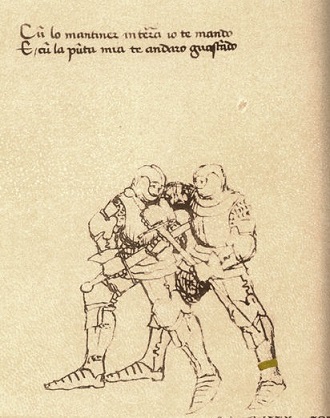 Cũ lo mantiner in tẽra io te mando
E, cũ la pũta mia te andaro guastãdo